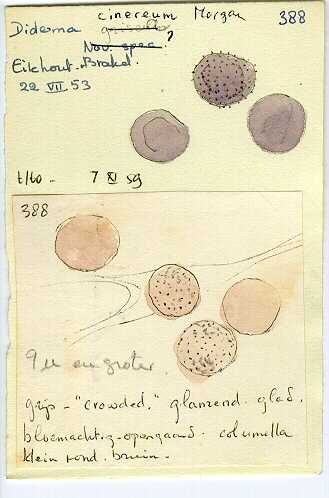 cinereum Morgan 388
Diderma
Nov. spec. ?
Eikhout. Brakel.
22 VII 53
t/40. 7 XI 59
388
9 u en groter.
grijs - "crowded", glanzend. glad.
bloemachtig-opengaand. columella
klein rond. bruin.